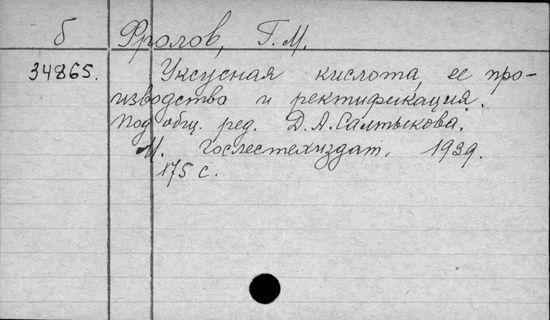 б Фролов, Г. М.
34865. Уксусная кислота, ее про-
изводство и ректификация.
Под общ. ред. Д. А. Салтыкова.
М. Гослестехиздат, 1939.
175 с.